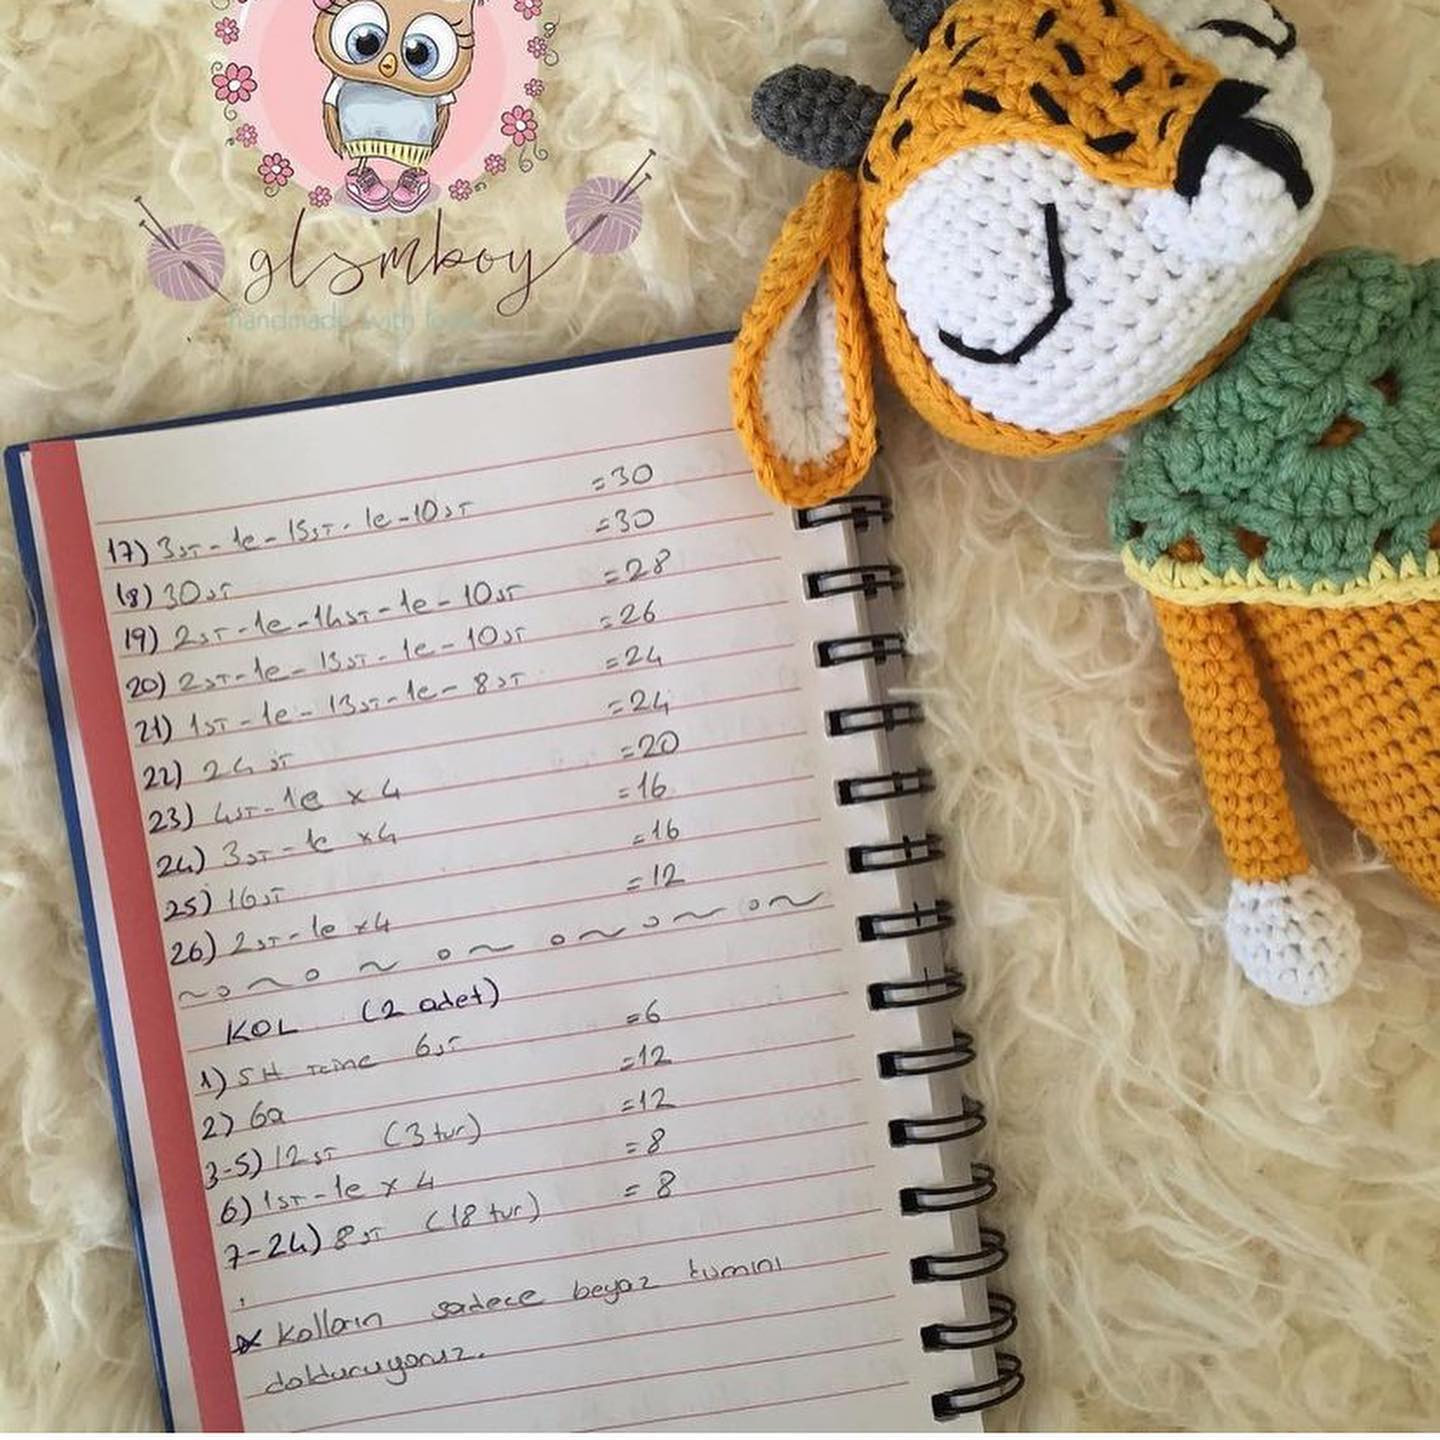 glsmboy
handmade with love
17) 3sT - 1e - 15sT - 1e - 10sT = 30
18) 30sT = 30
19) 2sT - 1e - 14sT - 1e - 10sT = 28
20) 2sT - 1e - 13sT - 1e - 10sT = 26
21) 1sT - 1e - 13sT - 1e - 8sT = 24
22) 24sT = 24
23) 4sT - 1e x 4 = 20
24) 3sT - 1e x4 = 16
25) 16sT = 16
26) 2sT - 1e x4 = 12
KOL (2 adet)
1) SH icine 6sT = 6
2) 6a = 12
3-5) 12sT (3 tur) = 12
6) 1sT - 1e x 4 = 8
7-24) 8sT (18 tur) = 8
* Kolların sadece beyaz kısmını
dolduruyoruz.